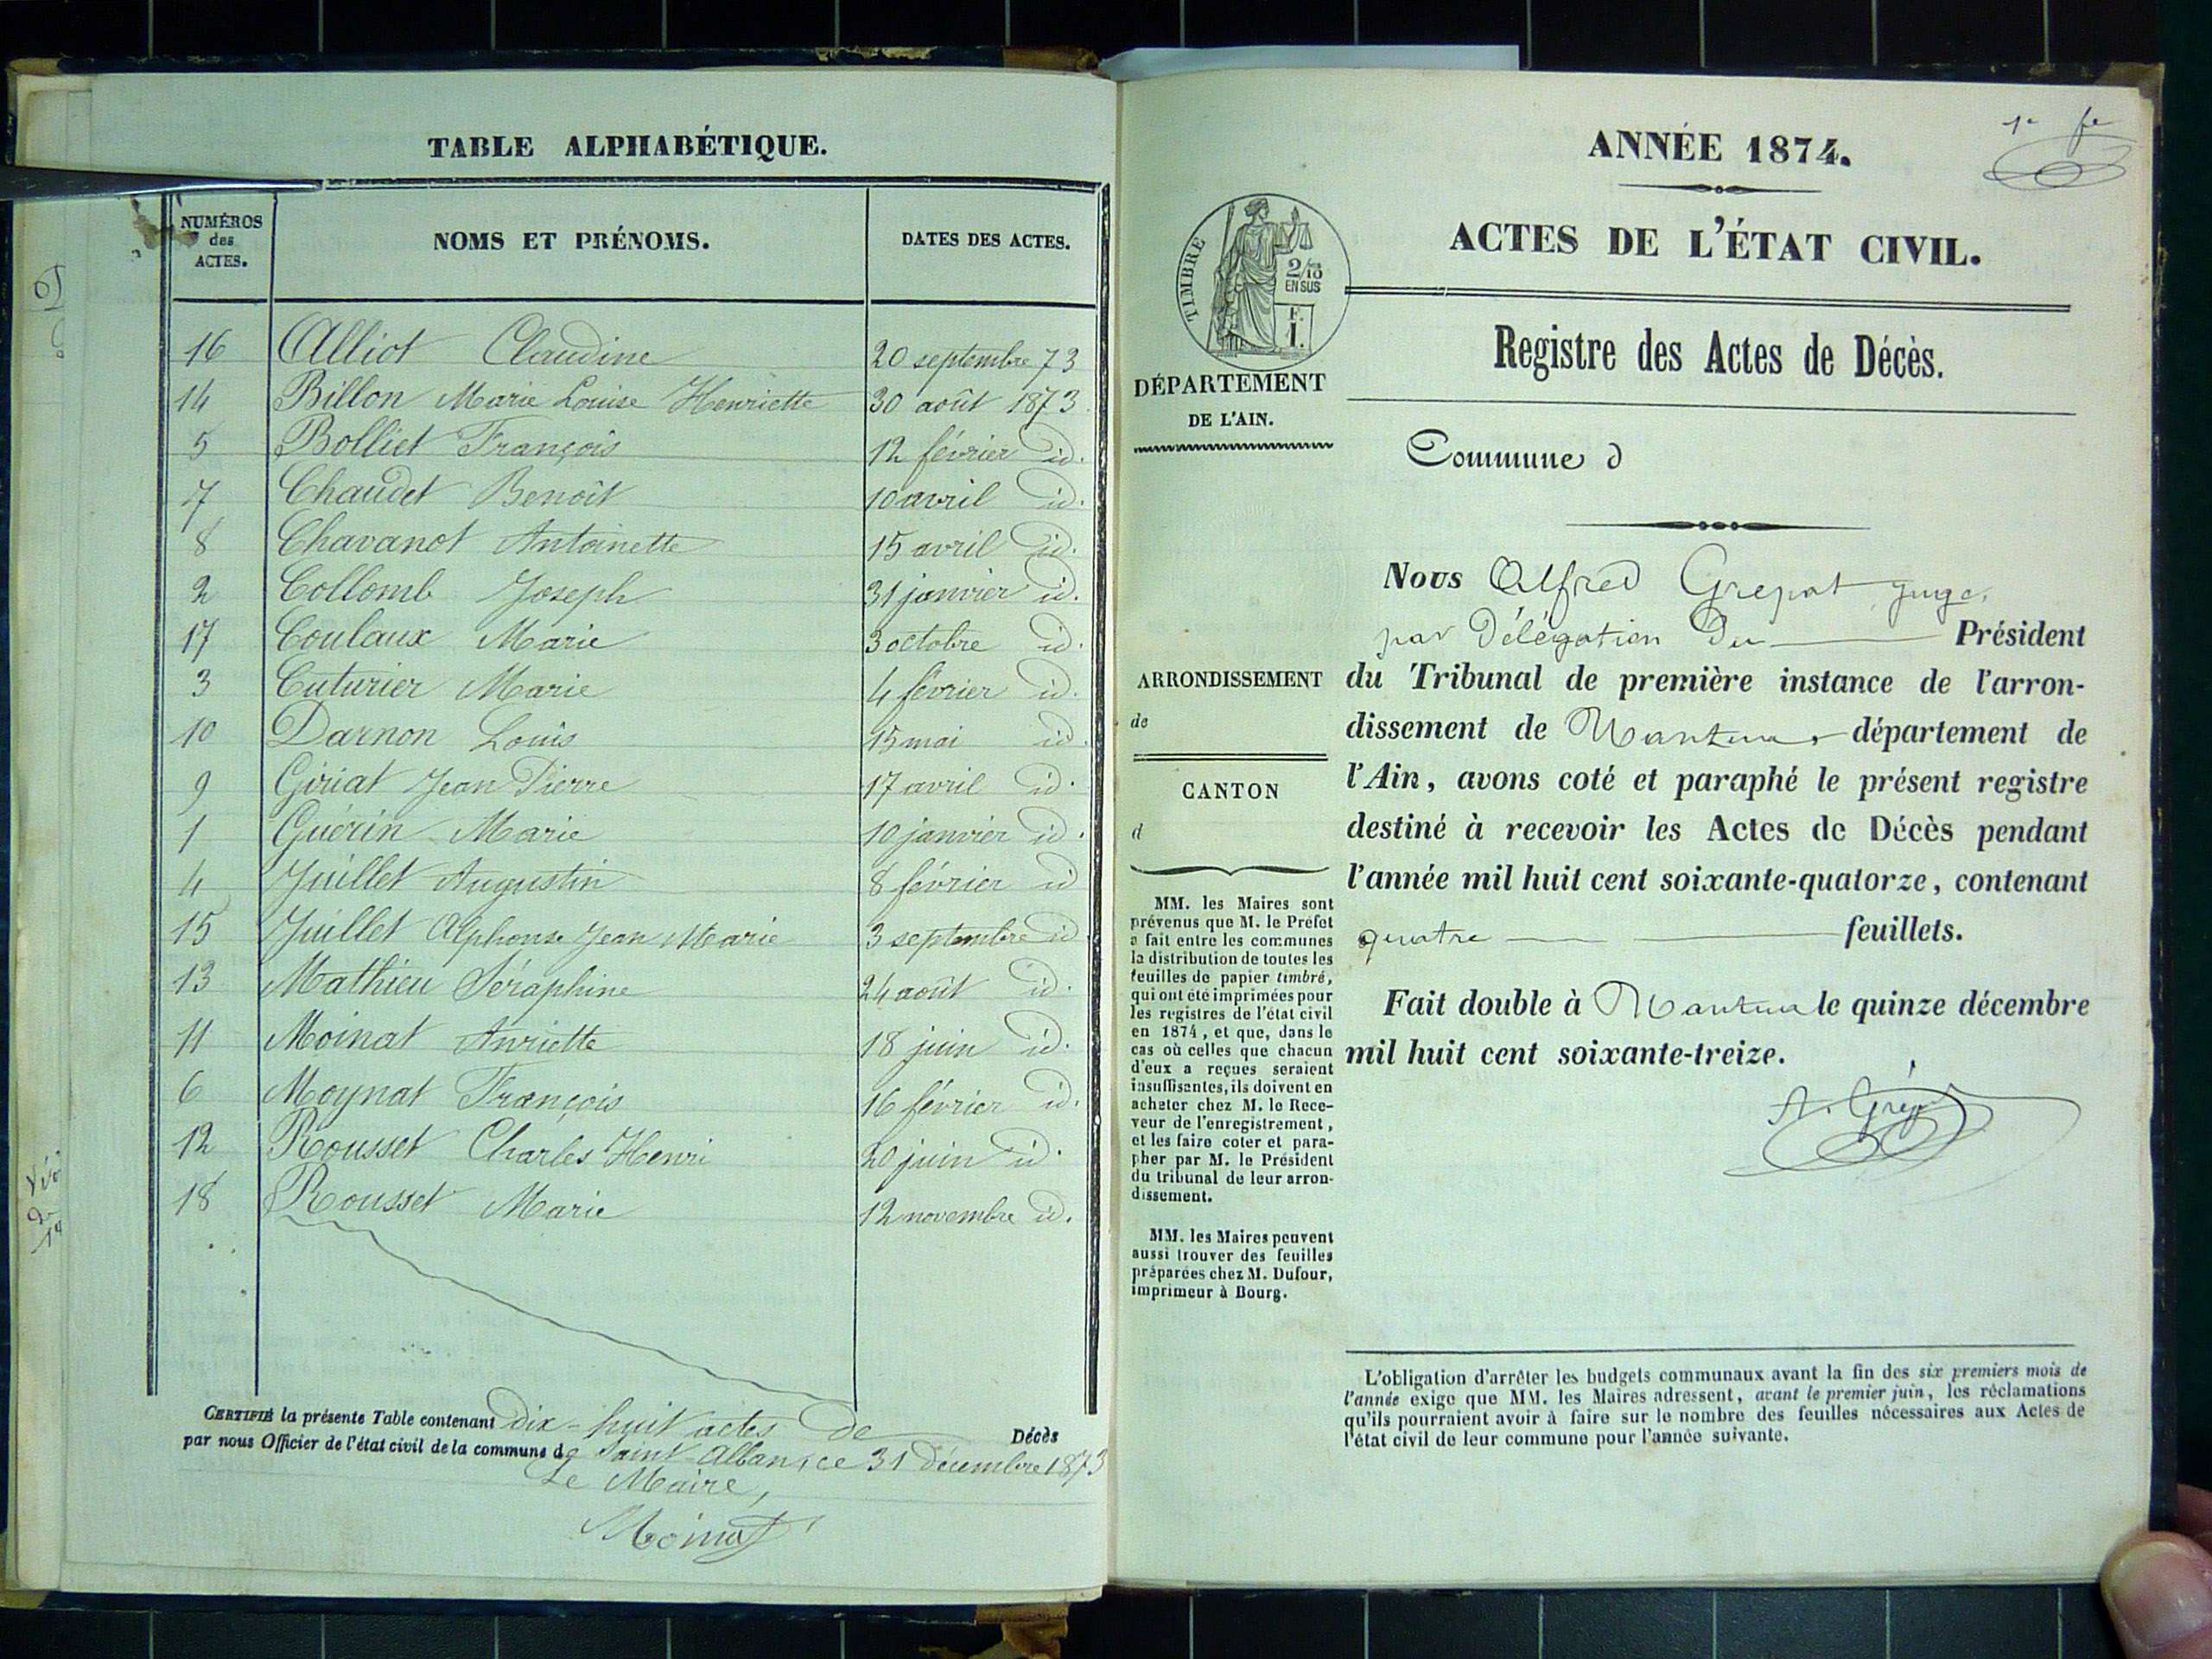 TABLE ALPHABÉTIQUE.
NUMÉROS des ACTES. NOMS ET PRÉNOMS. DATES DES ACTES.
16 Alliot Claudine 20 septembre 73
14 Billon Marie Louise Henriette 30 août 1873
5 Bolliet François 12 février id.
7 Chaudet Benoît 10 avril id.
8 Chavanot Antoinette 15 avril id.
2 Collomb Joseph 31 janvier id.
17 Coulaux Marie 3 octobre id.
3 Cuturier Marie 4 février id.
10 Darnon Louis 15 mai id.
9 Giriat Jean Pierre 17 avril id.
1 Guérin Marie 10 janvier id.
4 Juillet Augustin 8 février id
15 Juillet Alphonse Jean Marie 3 septembre id
13 Mathieu Séraphine 24 août id.
11 Moinat Anriette 18 juin id.
6 Moynat François 16 février id.
12 Rousset Charles Henri 20 juin id.
18 Rousset Marie 12 novembre id.
CERTIFIÉ la présente Table contenant dix-huit actes de Décès
par nous Officier de l'état civil de la commune de Saint-Alban, ce 31 décembre 1873
Le Maire,
Moinat
1er fet
ANNÉE 1874.
ACTES DE L'ÉTAT CIVIL.
TIMBRE
2/10
EN SUS
F.
1.
Registre des Actes de Décès.
DÉPARTEMENT
DE L'AIN.
Commune d
Nous Alfred Grepat juge,
par Délégation Du Président
ARRONDISSEMENT
de
du Tribunal de première instance de l'arron-
dissement de Nantua, département de
l'Ain, avons coté et paraphé le présent registre
destiné à recevoir les Actes de Décès pendant
l'année mil huit cent soixante-quatorze, contenant
quatre feuillets.
Fait double à Nantua le quinze décembre
mil huit cent soixante-treize.
CANTON
d
MM. les Maires sont
prévenus que M. le Préfet
a fait entre les communes
la distribution de toutes les
feuilles de papier timbré,
qui ont été imprimées pour
les registres de l'état civil
en 1874, et que, dans le
cas où celles que chacun
d'eux a reçues seraient
insuffisantes, ils doivent en
acheter chez M. le Rece-
veur de l'enregistrement,
et les faire coter et para-
pher par M. le Président
du tribunal de leur arron-
dissement.
MM. les Maires peuvent
aussi trouver des feuilles
préparées chez M. Dufour,
imprimeur à Bourg.
L'obligation d'arrêter les budgets communaux avant la fin des six premiers mois de
l'année exige que MM. les Maires adressent, avant le premier juin, les réclamations
qu'ils pourraient avoir à faire sur le nombre des feuilles nécessaires aux Actes de
l'état civil de leur commune pour l'année suivante.